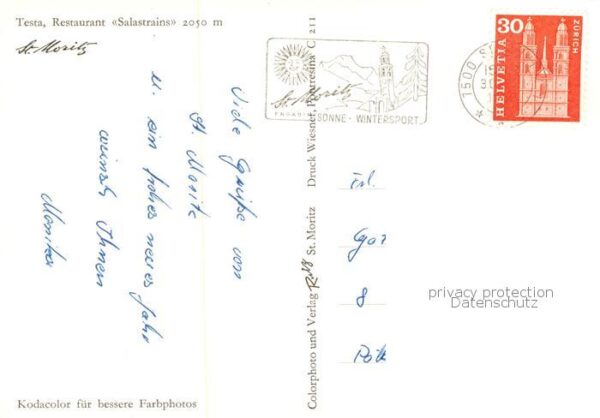 Testa, Restaurant «Salastrains» 2050 m
St. Moritz
St. Moritz
SONNE - WINTERSPORT
7500
30
HELVETIA
ZÜRICH
Viele Grüße von
St. Moritz
u. ein frohes neues Jahr
wünscht Ihnen
Monika
Colorphoto und Verlag St. Moritz Druck Wiesner, Pontresina C 211
Frl.
8
privacy protection
Datenschutz
Kodacolor für bessere Farbphotos